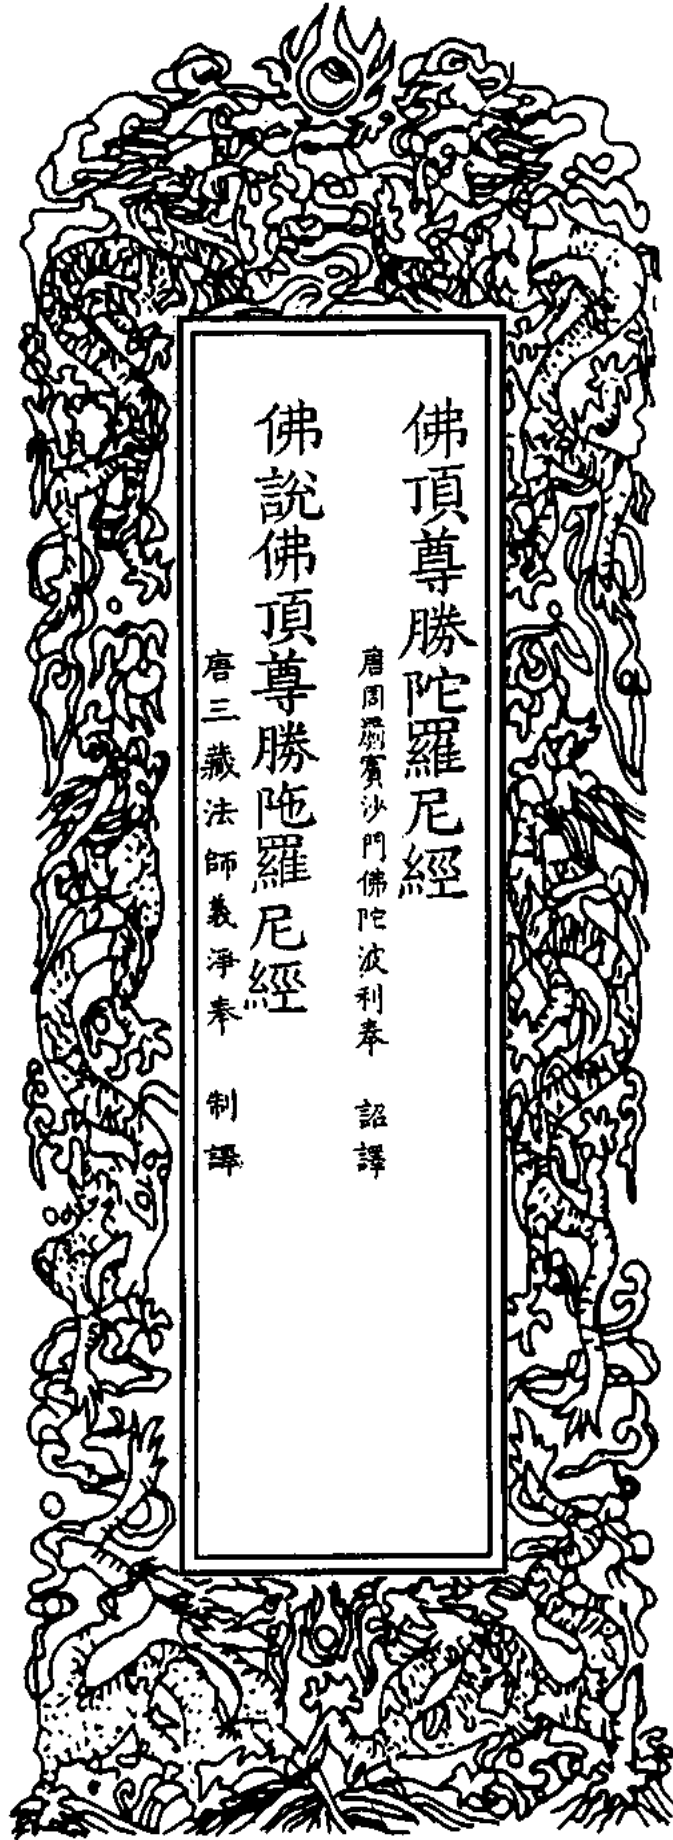 佛頂尊勝陀羅尼經
唐罽賓沙門佛陀波利奉 詔譯
佛說佛頂尊勝陁羅尼經
唐三藏法師義淨奉 制譯